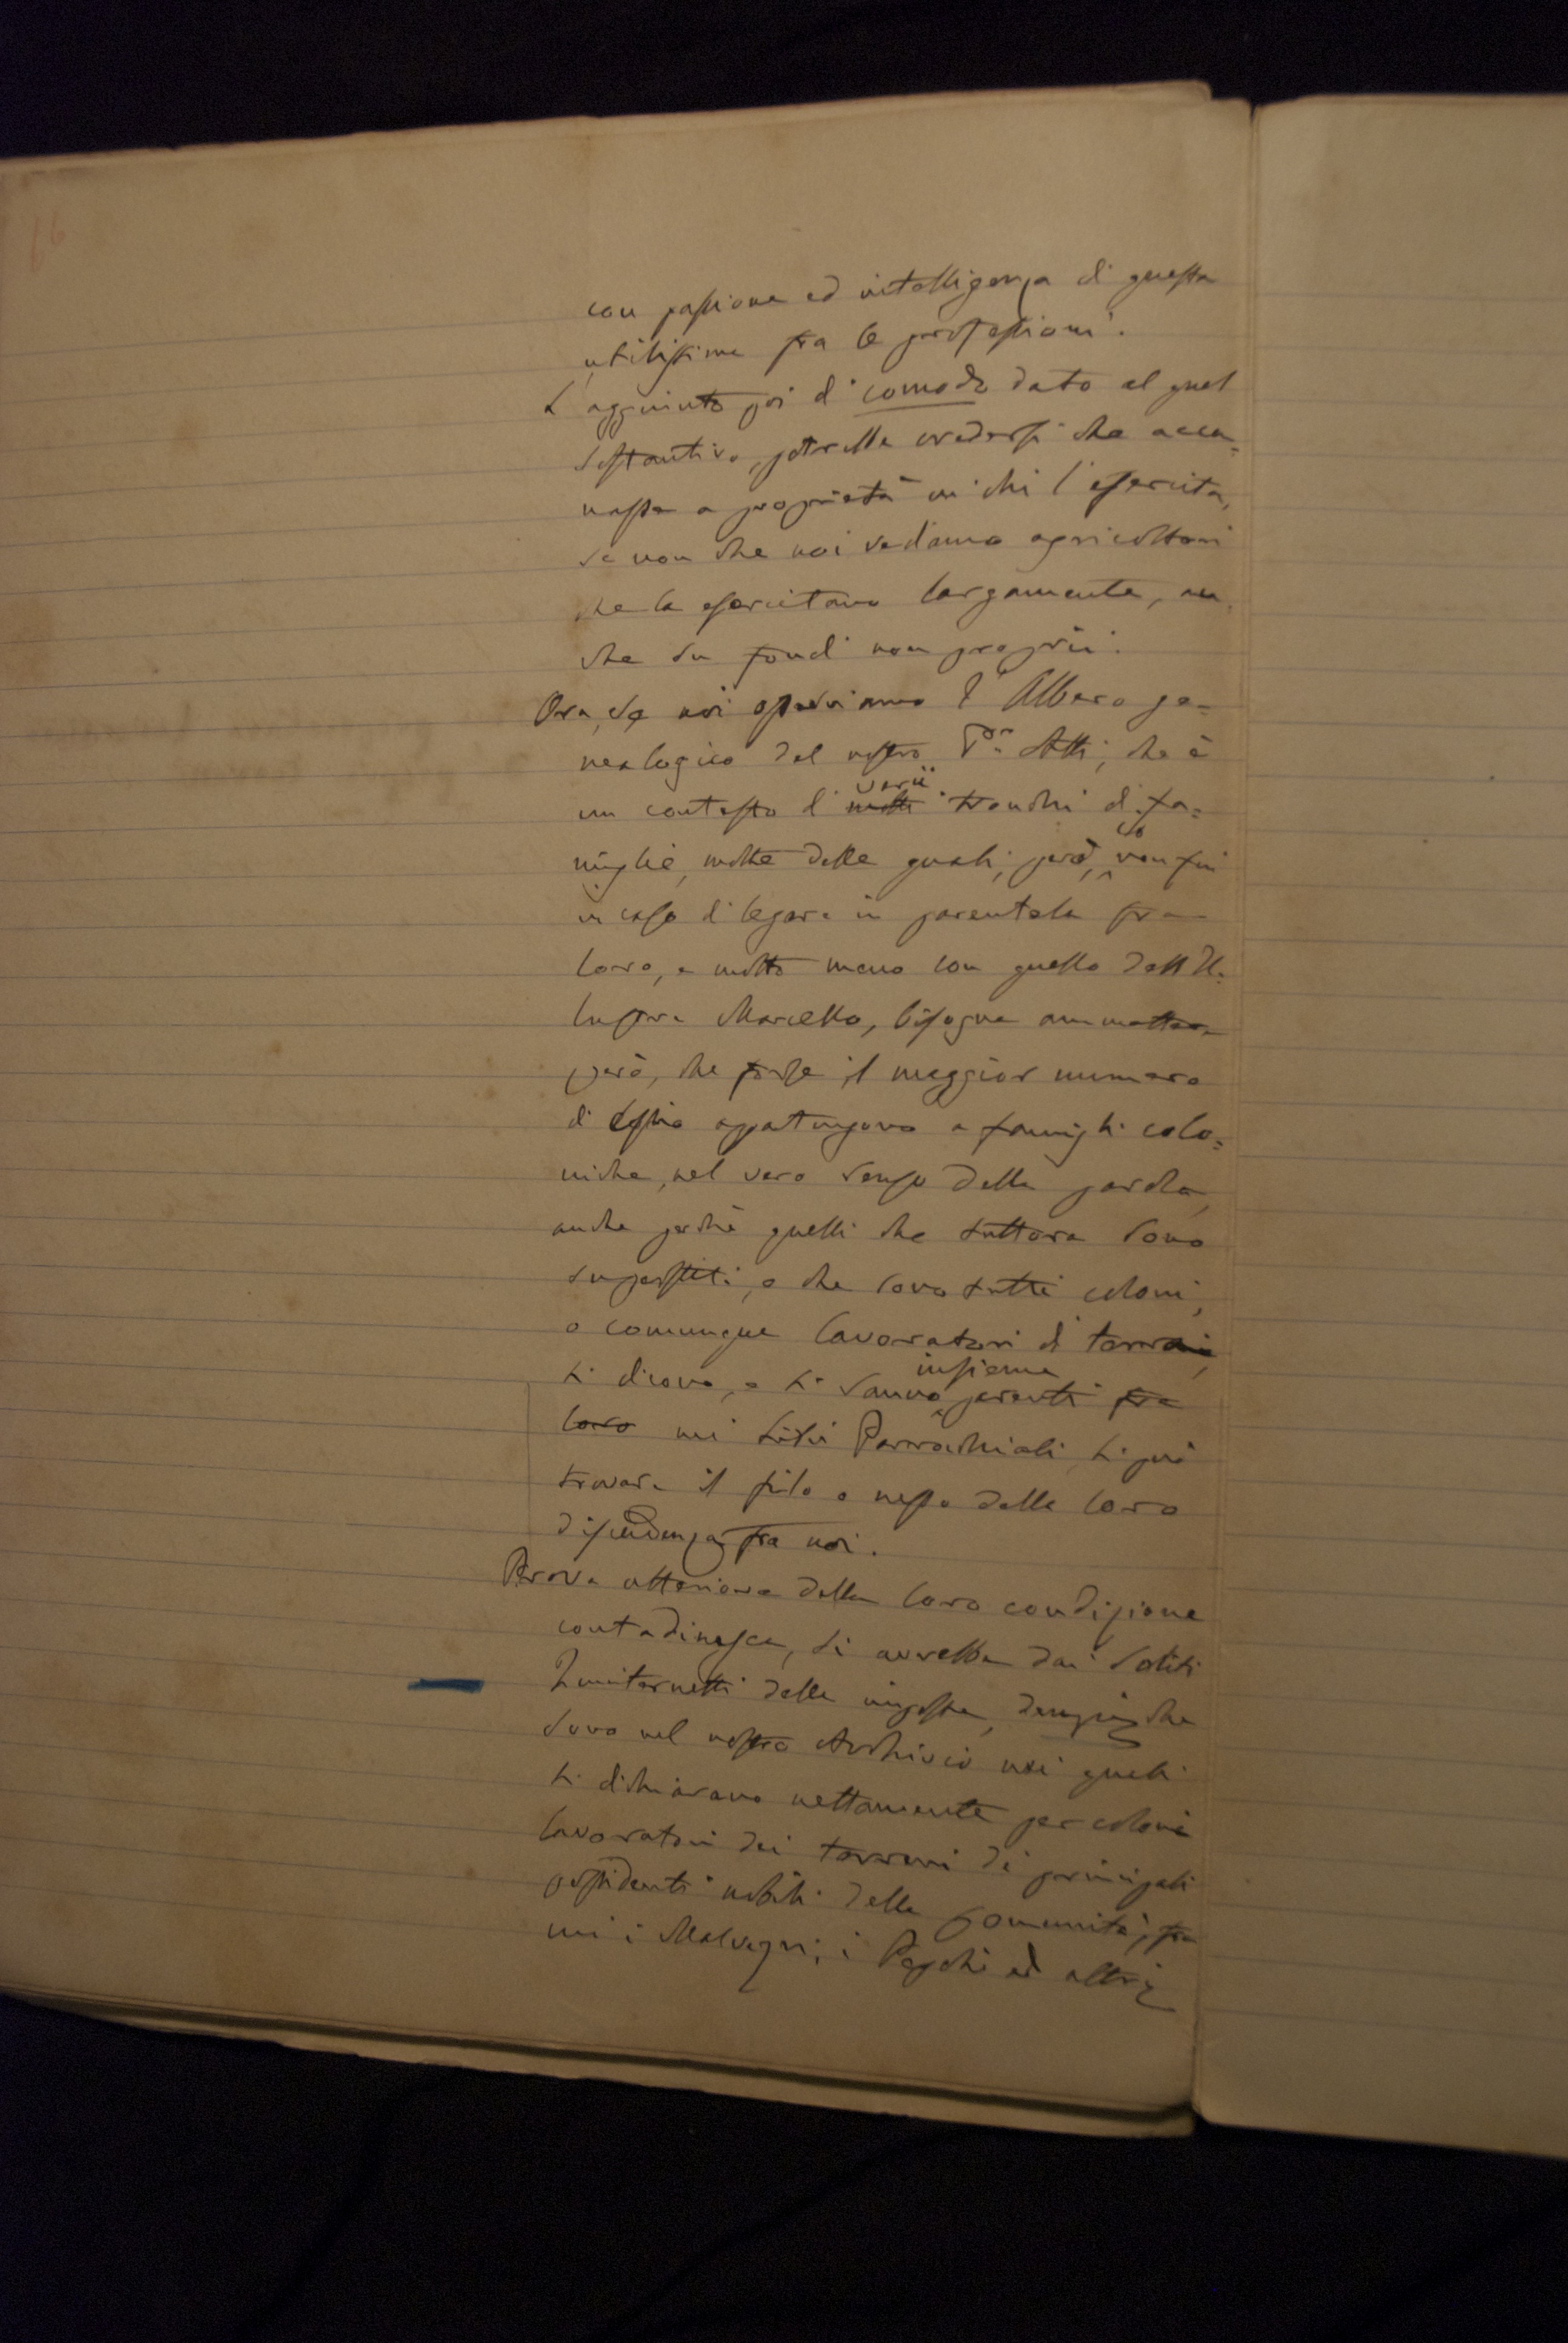 66
con passione ed intelligenza di questa
utilissima fra le professioni.
L'aggiunto poi di comodo dato al quel
sostantivo, potrebbe credersi che accen=
nasse a proprietà in chi l'esercita,
se non che noi vediamo agricoltori
che la esercitano largamente, an=
che su fondi non proprii.
Ora, se noi osserviamo l'Albero ge=
nealogico del nostro Atti, che è
un contesto di molti varii tronchi di fa=
miglie, molte delle quali, però, non fui
in caso di legare in parentela fra
loro, e molto meno con quella dell'Il=
lustre Marcello, bisogna ammettere
però, che forse il maggior numero
di esse appartengono a famiglie colo=
niche, nel vero senso della parola,
anche perchè quelli che tuttora sono
superstiti, e che sono tutti coloni,
o comunque lavoratori di terreni,
si dicono, e si sanno insieme parenti fra
loro nei Parrochiali si può
trovare il filo o nesso della loro
dipendenza fra noi.
Prova ulteriore della loro condizione
contadinesca, si avrebbe dai soliti
Quinternetti delle imposte, che
sono nel nostro Archivio nei quali
si dichiarano nettamente per coloni
lavoratori dei terreni di principali
possidenti nobili della Comunità, fra
cui i Malvezzi, i ed altri